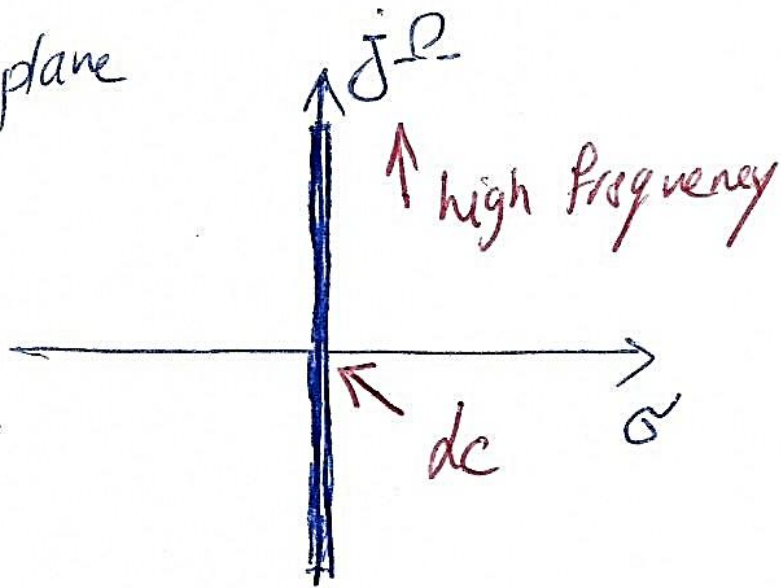 plane
jΩ
↑ high frequency
dc
σ